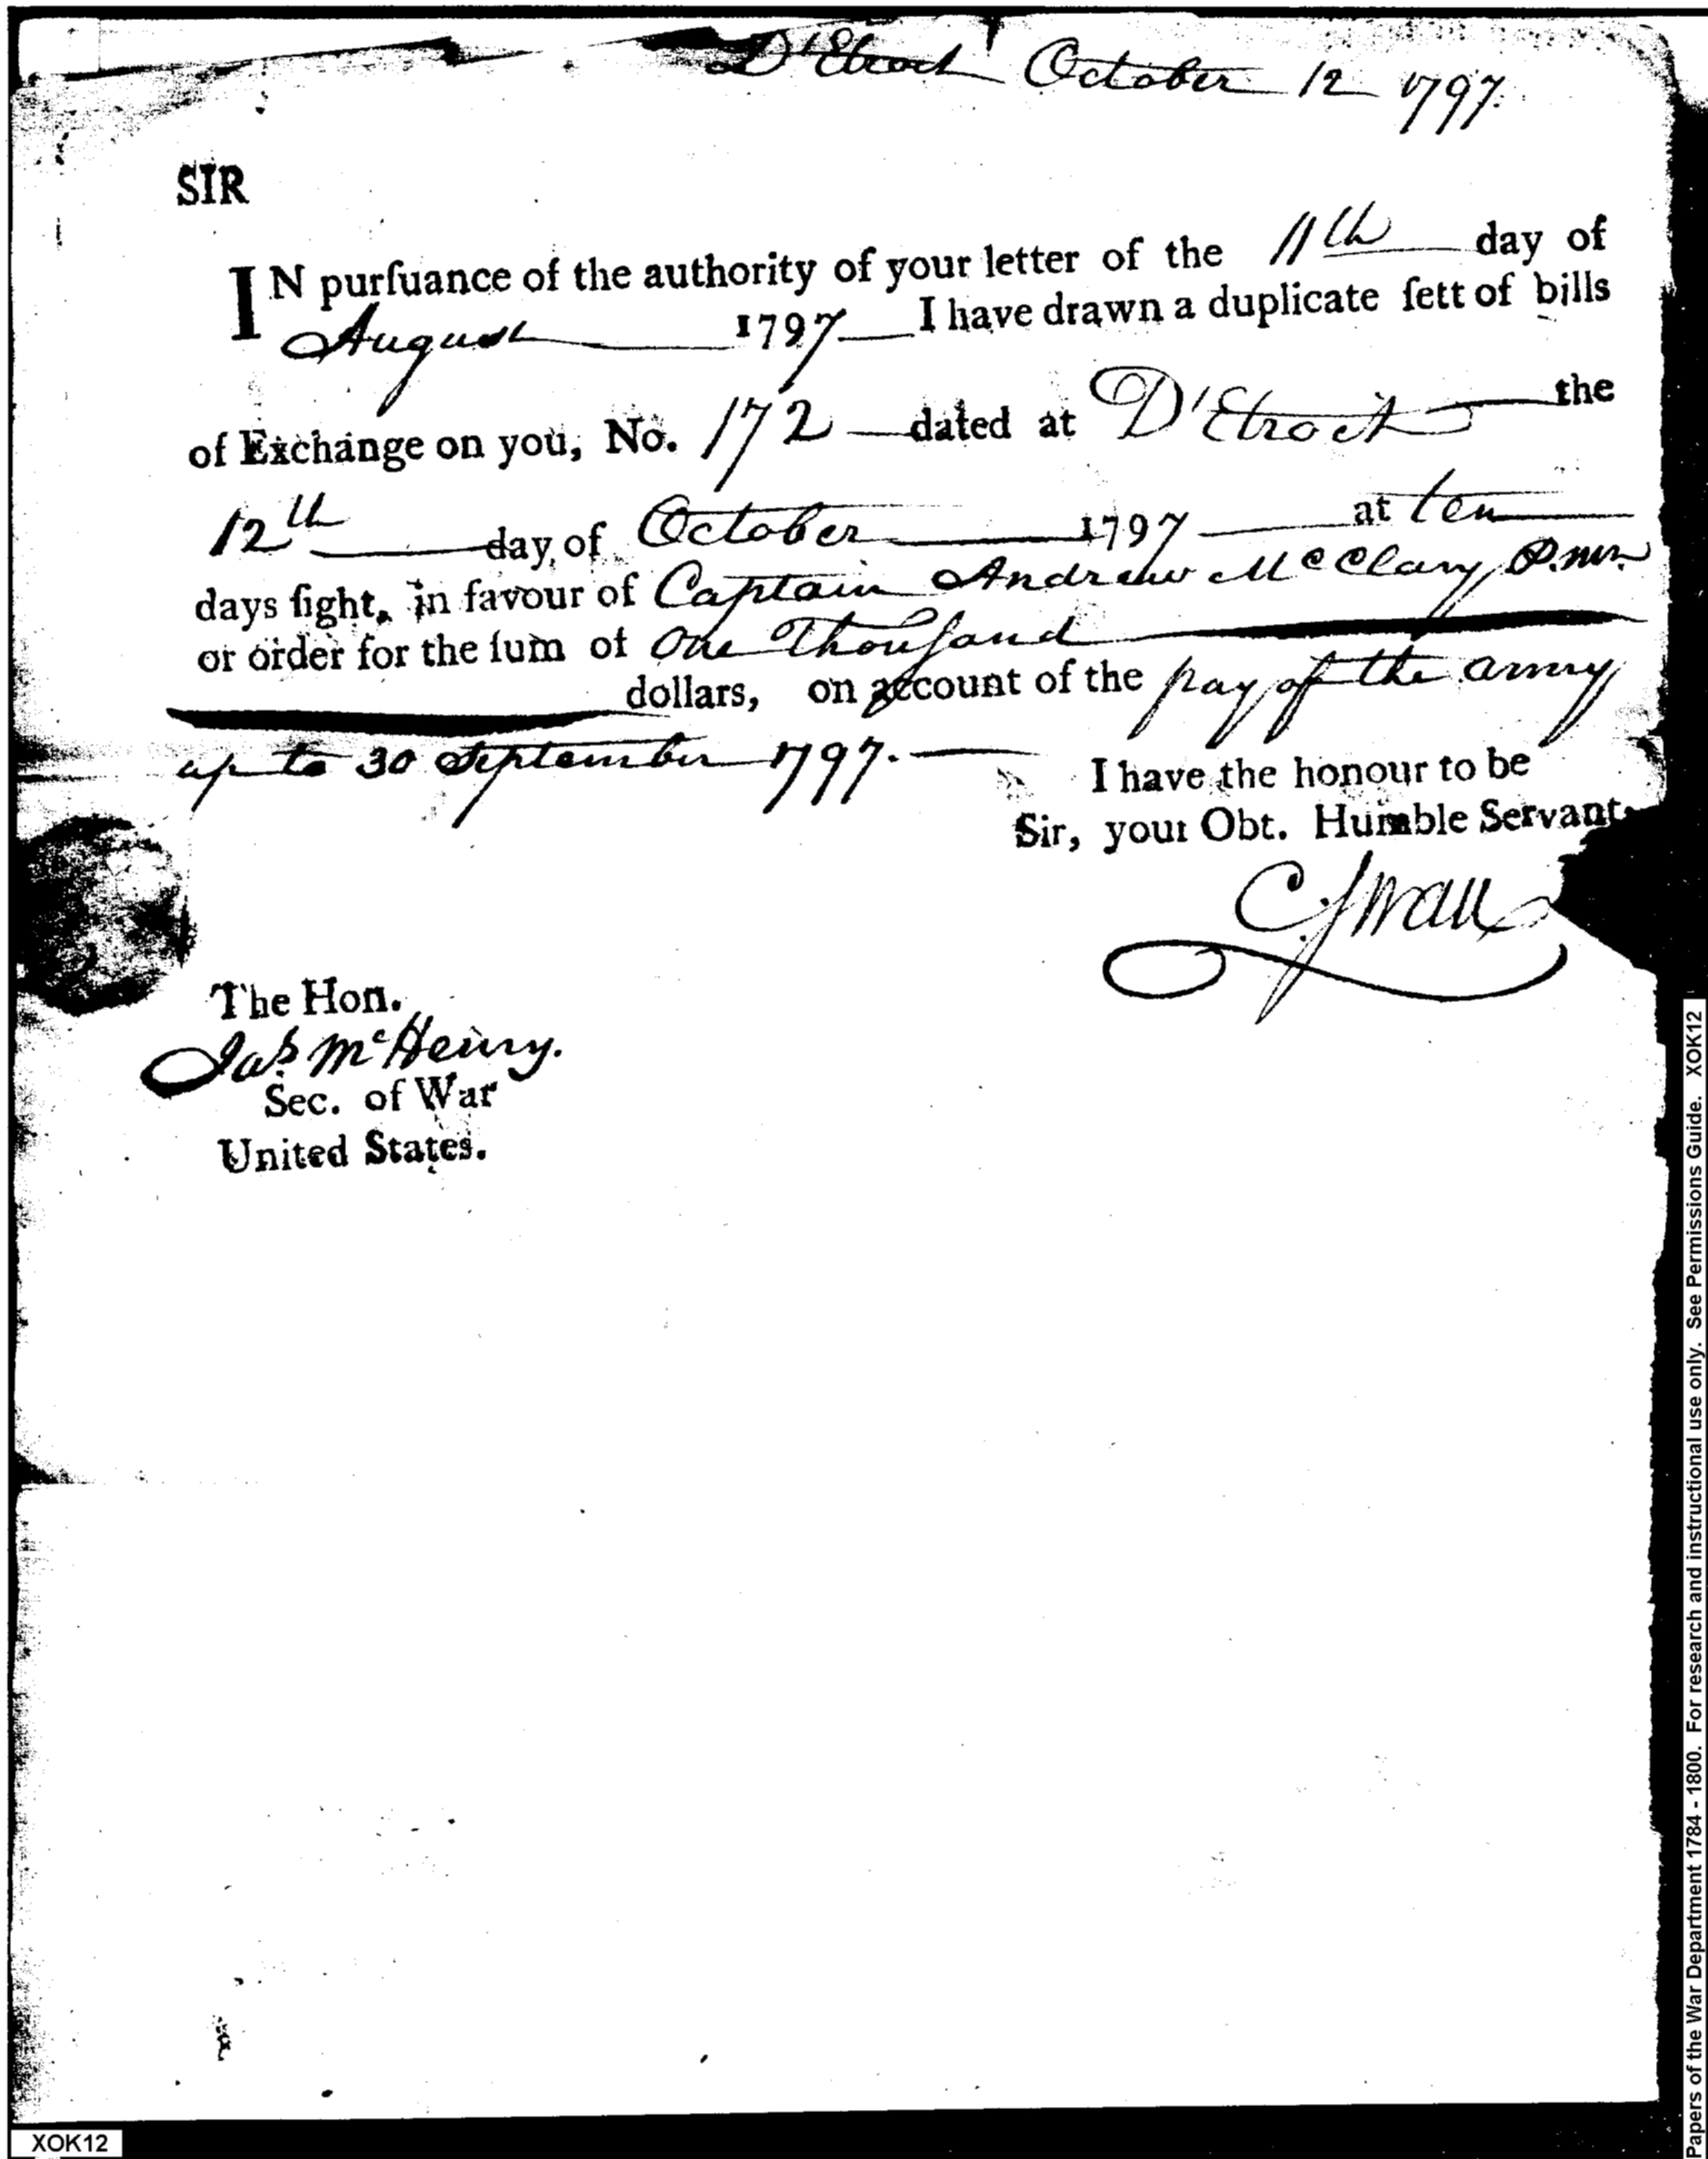 D'Etroit October 12 1797.
SIR
IN purſuance of the authority of your letter of the 11th day of
August 1797 I have drawn a duplicate ſett of bills
of Exchange on you, No. 172 dated at D'Etroit the
12th day of October 1797 at ten
days ſight, in favour of Captain Andrew McClary P.Mr.
or order for the ſum of One Thouſand
dollars, on account of the pay of the army
up to 30 September 1797.
I have the honour to be
Sir, your Obt. Humble Servant
C. Swan
The Hon.
Jas. McHenry.
Sec. of War
United States.
Papers of the War Department 1784 - 1800. For research and instructional use only. See Permissions Guide. XOK12
XOK12